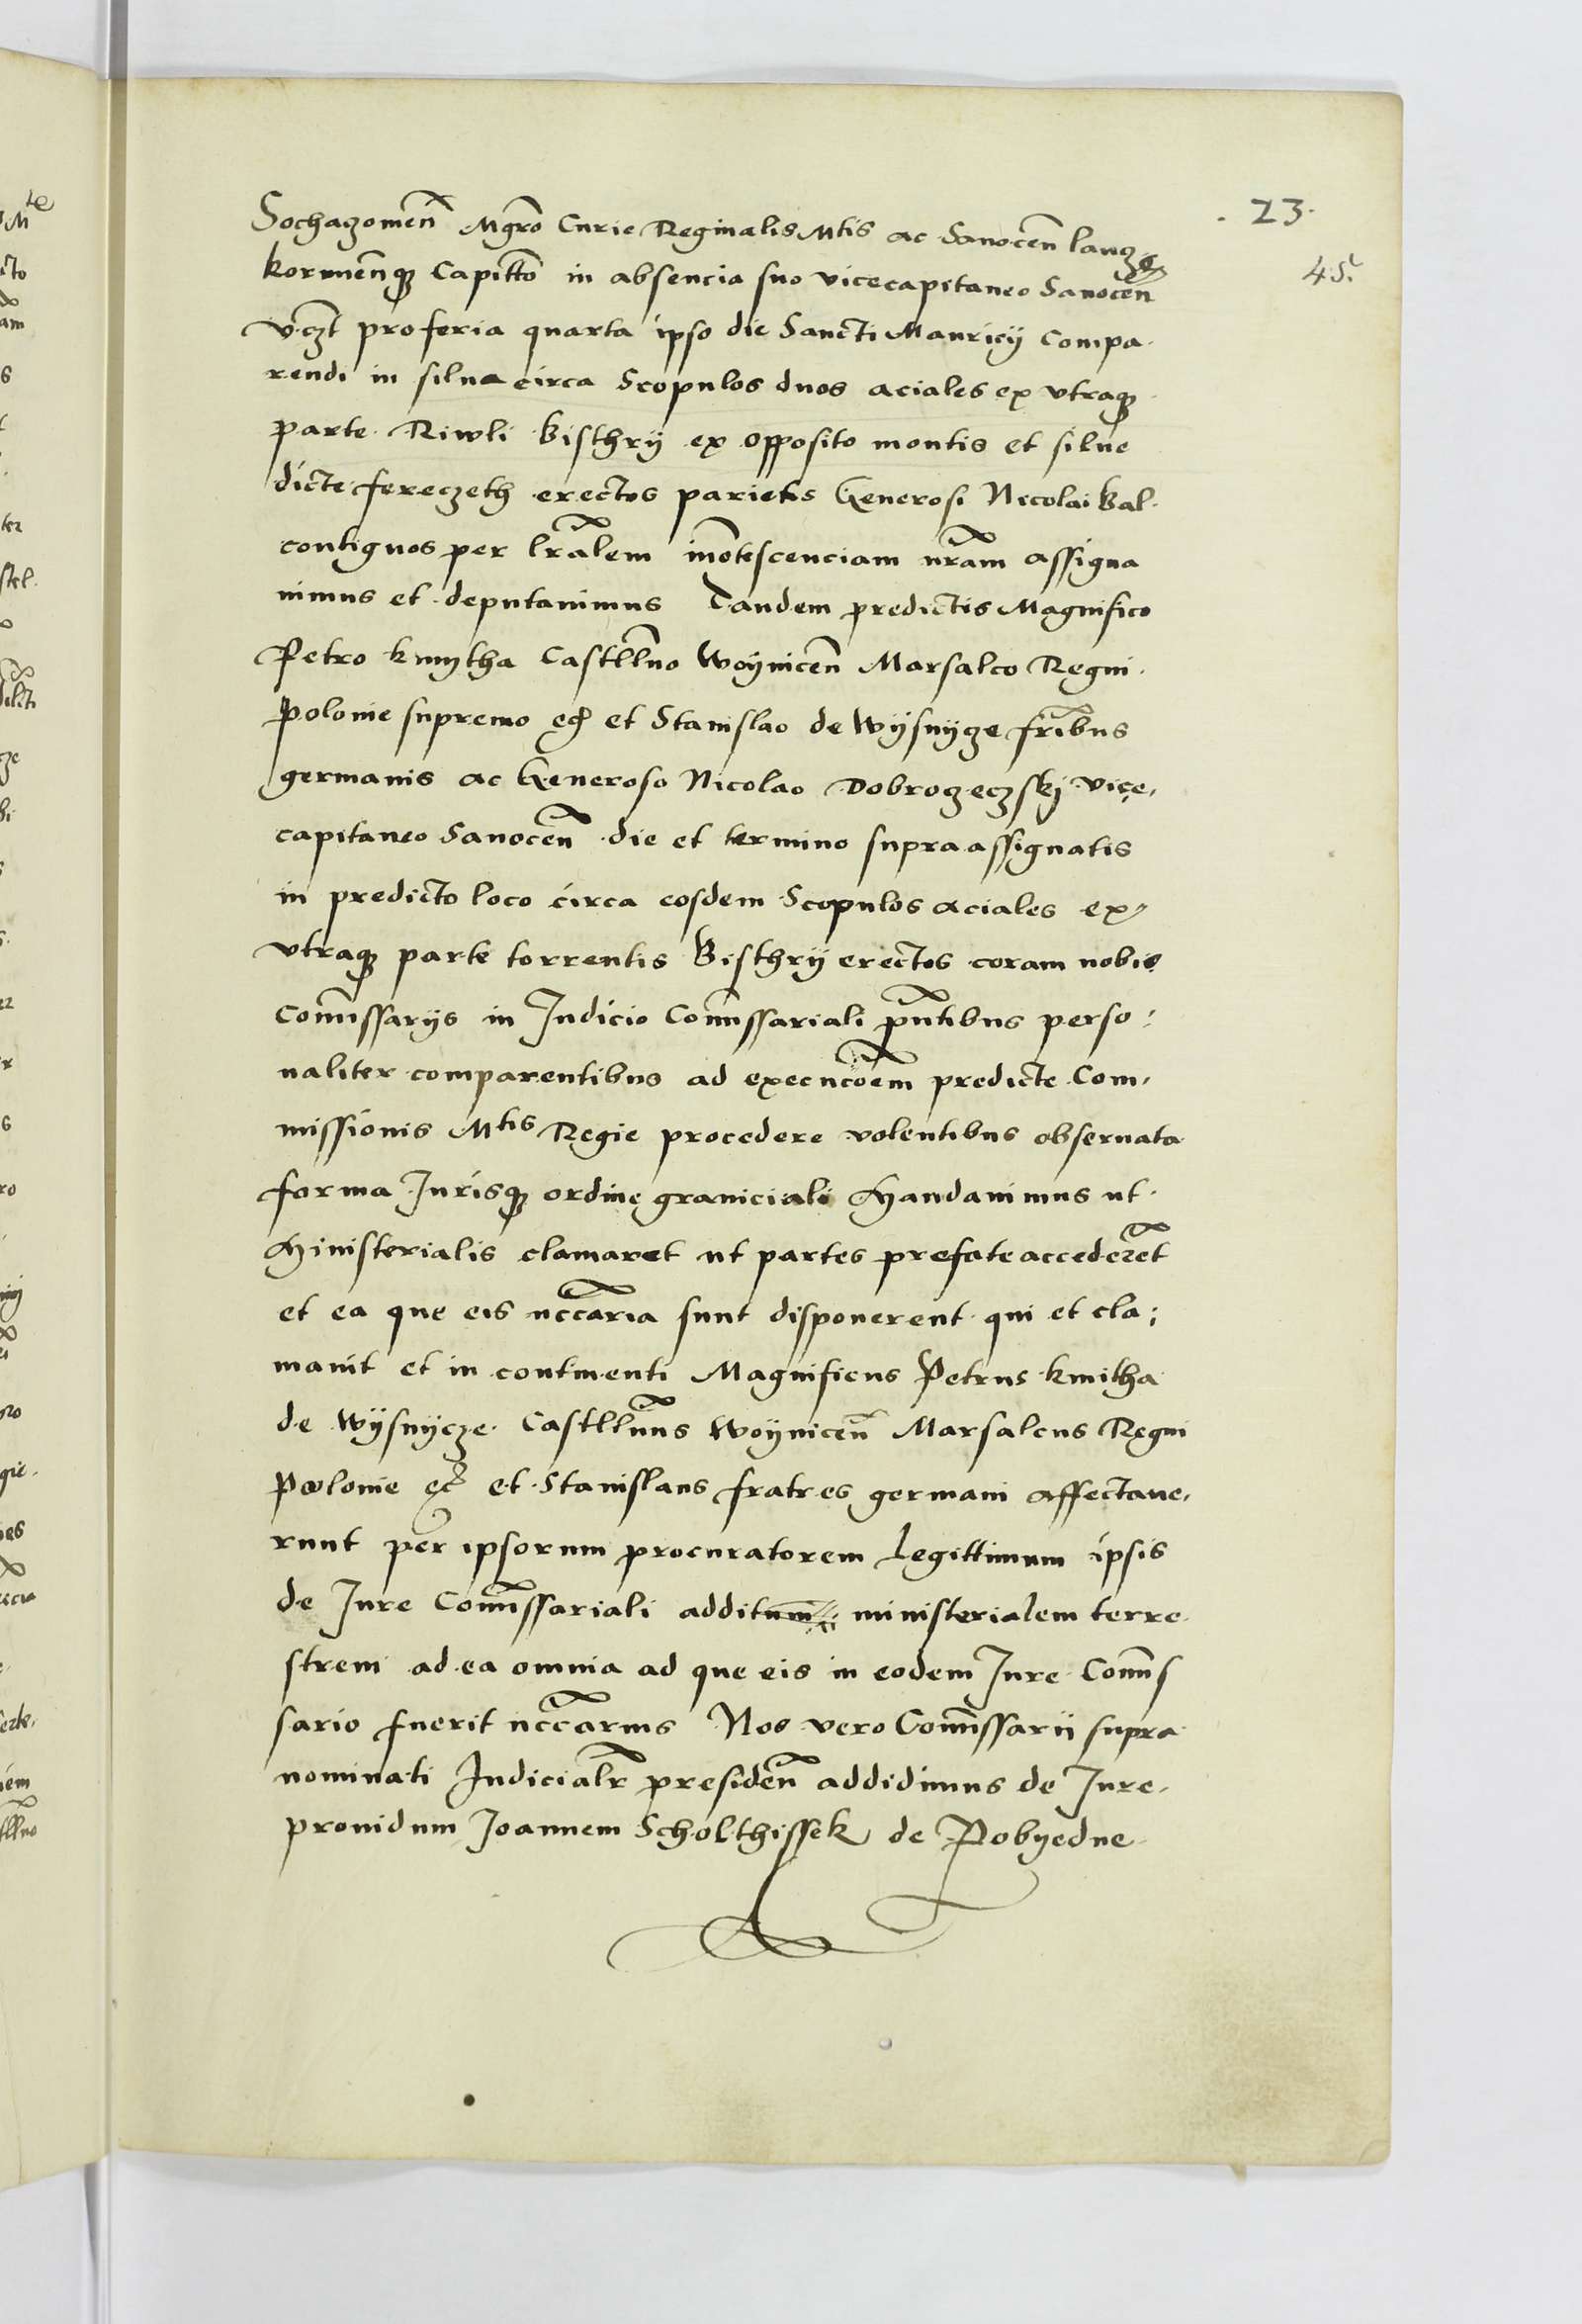 . 23.
45.
Sochazomen̄ Mgr̄o Curie Reginalis Mtis ac Sanocen̄ lancz
kornen̄q; Capitt̄o in absencia suo vicecapitaneo Sanocen̄
vc̄zt pro feria quarta ipso die Sancti Mauricij Compa
rendi in silua circa Scopulos duos aciales ex vtraq;
parte Riwli Bisthrij ex opposito montis et silue
dicte fereczeth erectos parietis Generosi Nicolai Bal
contiguos per lr̄alem in̄otescenciam nr̄am assigna
uimus et deputauimus Tandem predictis Magnifico
Petro kmytha Castll̄no Woynicen̄ Marsalco Regni
Polonie supremo ec̄ et Stanislao de Wysnÿcze fr̄ibus
germanis ac Generoso Nicolao Dobroczeczskj vice,
capitaneo Sanocen̄ die et termino supra assignatis
in predicto loco circa eosdem Scopulos aciales ex
vtraq; parte torrentis Bisthrij erectos coram nobis
Com̄issarijs in Iudicio Com̄issariali pn̄tibus perso:
naliter comparentibus ad execuc̄oem predicte Com,
missionis Mtis Regie procedere volentibus obseruata
forma Jurisq; ordine graniciali Mandauimus ut
Ministerialis clamaret ut partes prefate accederet̄
et ea que eis ncc̄aria sunt disponerent qui et cla:
mauit et in continenti Magnificus Petrus kmitha
de Wysnÿcze Castlln̄us Woÿnicen̄ Marsalcus Regni
Polonie ec̄ et Stanislaus fratres germani affectaue,
runt per ipsorum procuratorem Legittimum ipsis
de Jure Com̄issariali additum ministerialem terre
strem ad ea omnia ad que eis in eodem Jure Com̄s
sario fuerit ncc̄arius Nos vero Com̄issarii supra
nominati Iudicialr̄ presiden̄ addidimus de Jure
prouidum Joannem Scholthissek de Pobyedne